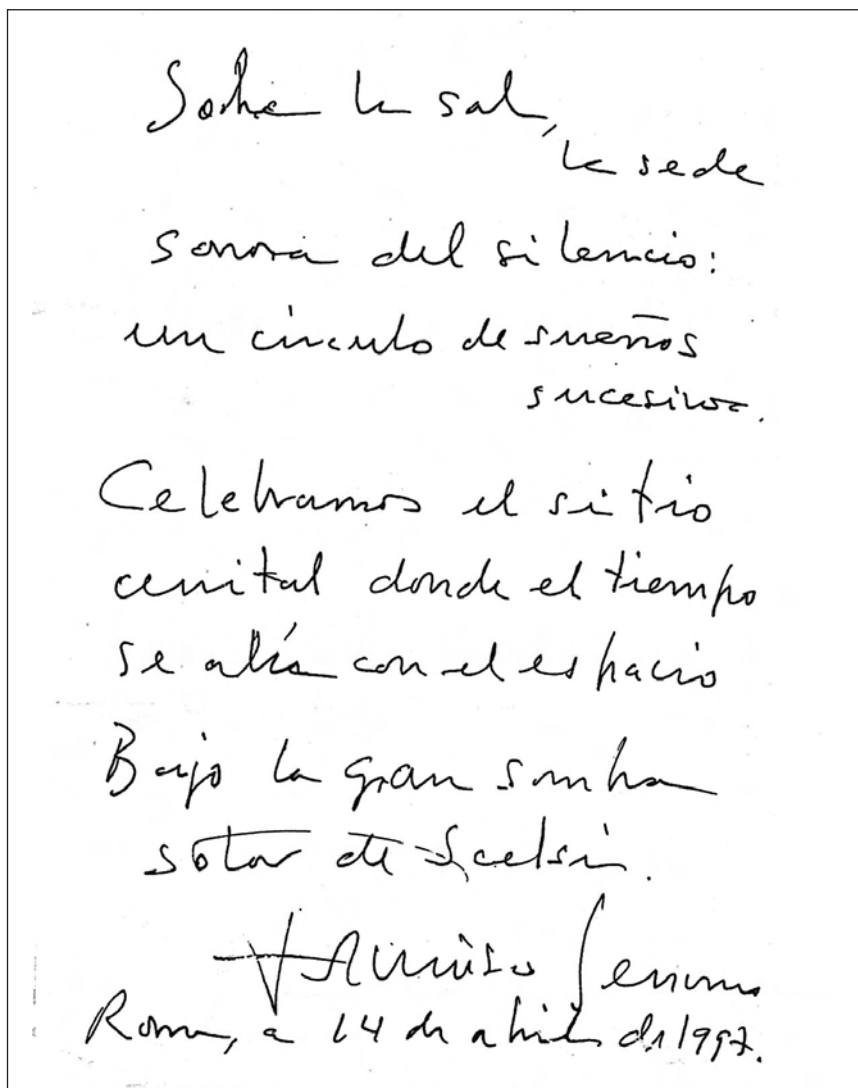 Sobre la sal,
la sede
sonora del silencio:
un círculo de sueños
sucesivos.
Celebramos el sitio
cenital donde el tiempo
se alía con el espacio
Bajo la gran sombra
solar de Scelsi.
Roma, a 14 de abril de 1997.